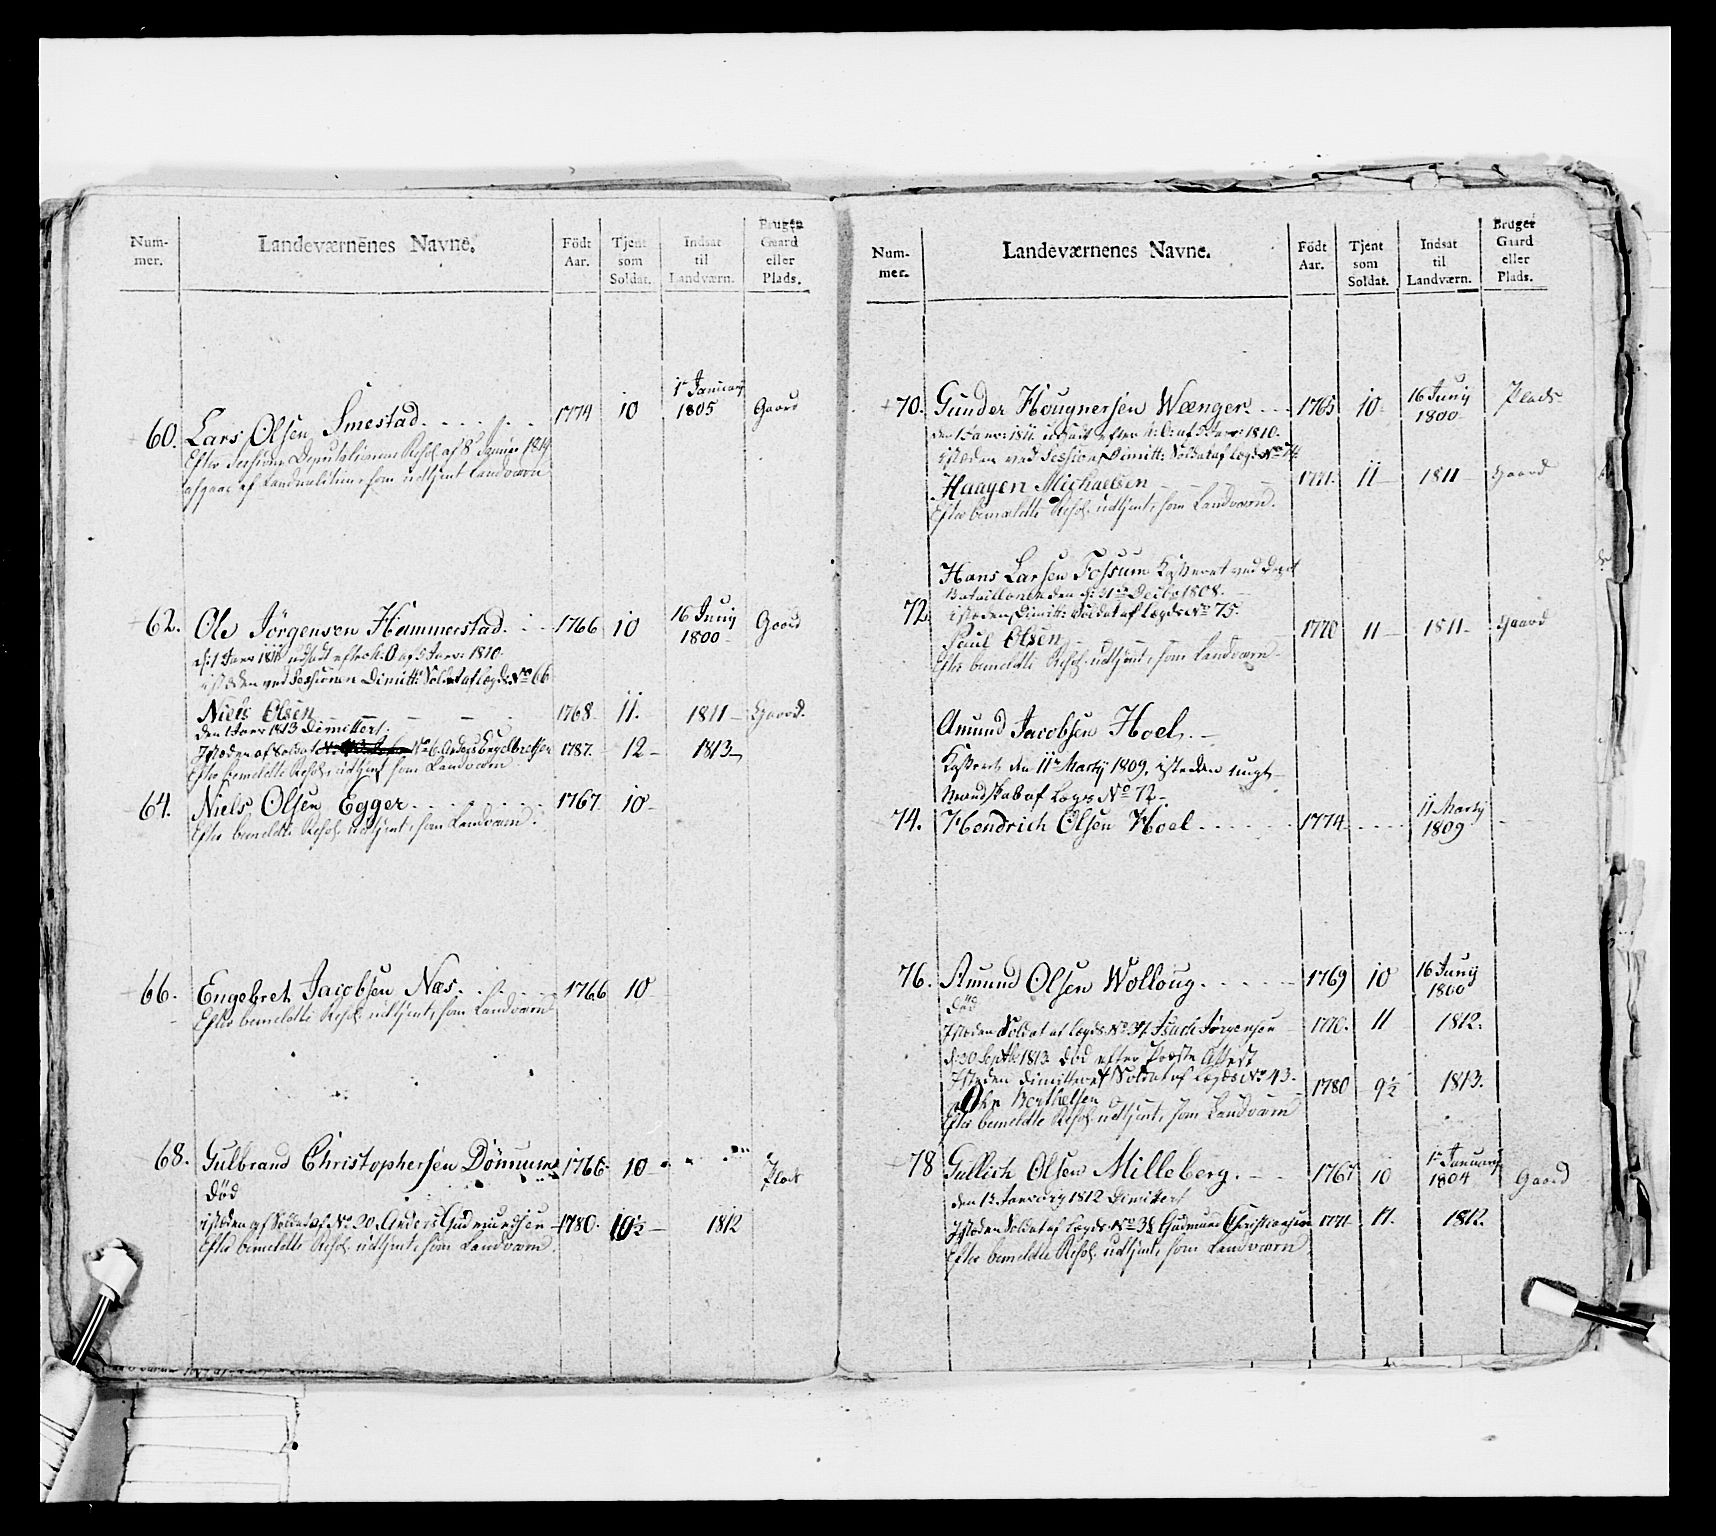 Num-
mer.
Landeværnenes Navne.
Födt
Aar.
Tjent
som
Soldat.
Indsat
til
Landværn.
Bruger
Gaard
eller
Plads.
60. Lars Olsen Smestad. 1774 10 1te January 1805 Gaard
Efter Sessions Deputationens Resol. af 8de Januar 1814
afgaaet af Landmilitien, som udtjent Landværn
62. Ole Jörgensen Hammerstad. 1766 10 16 Juny 1800 Gaard
d: 1 Janr 1811 udsadt efter K. O af 5 Janr: 1810.
istæden ved Sessionen Dimitt: Soldat af Lægds No 66
Niels Olsen 1768 11. 1811 Gaard.
den 1 Janr 1813 Dimittert.
Istæden af Soldat No 6. Anders Engelbretsen 1787. 12 1813
Efter bemeldte Resol. udtjent som Landværn
64. Niels Olsen Egger 1767 10
Efter bemeldte Resol. udtjent, som Landværn.
66. Engebret Jacobsen Næs. 1766 10
Efter bemeldte Resol. udtjent, som Landværn
68. Gulbrand Christophersen Dönnum 1766 10 Plads
Död
istæden af Soldat af No 20. Anders Gudmundsen 1780. 10½ 1812
Efter bemeldte Resol. udtjent, som Landværn
Num-
mer.
Landeværnenes Navne.
Födt
Aar.
Tjent
som
Soldat.
Indsat
til
Landværn.
Bruger
Gaard
eller
Plads.
70. Gunder Hougnersen Wænger. 1765 10 16 Juny 1800 Plads
den 1 Janr: 1811 udsadt efter K: O: af 5 Janr: 1810.
istæden ved Session Dimitt: Soldat af Lægds No 74
Haagen Michaelsen 1771. 11 1811 Gaard
Efter bemeldte Resol. udtjent, som Landværn.
Hans Larsen Fossum Kasseret ved Depot
Bataillonen den 31te Decbr 1808.
72. istæden Dimitt: Soldat af Lægds No 75.
Paul Olsen 1770 11 1811 Gaard
Efter bemeldte Resol. udtjent, som Landværn
Amund Jacobsen Hoel.
Kasseret den 11te Marty 1809, isteden ungt
Mandskab af Lægs No 72
74. Hendrich Olsen Hoel 1774 11 Marty 1809
76. Amund Olsen Wolloug 1769 10 16 Juny 1800
Död
Istæden Soldat af Lægds No 34. Isach Jörgensen 1770. 11 1812.
d: 20 Septbr 1813 död efter Præste Attest
Istæden dimitteret Soldat af Lægds No 43. 1780 9½ 1813.
Ole Berthelsen
Efter bemeldte Resol. udtjent, som Landværn
78 Gullich Olsen Milleberg. 1767 10 1te January 1804 Gaard
den 1te January 1812 Dimittert
Istæden Soldat af Lægds No 38 Gudmund Christiansen 1771 11. 1812.
Efter bemeldte Resol. udtjent, som Landværn